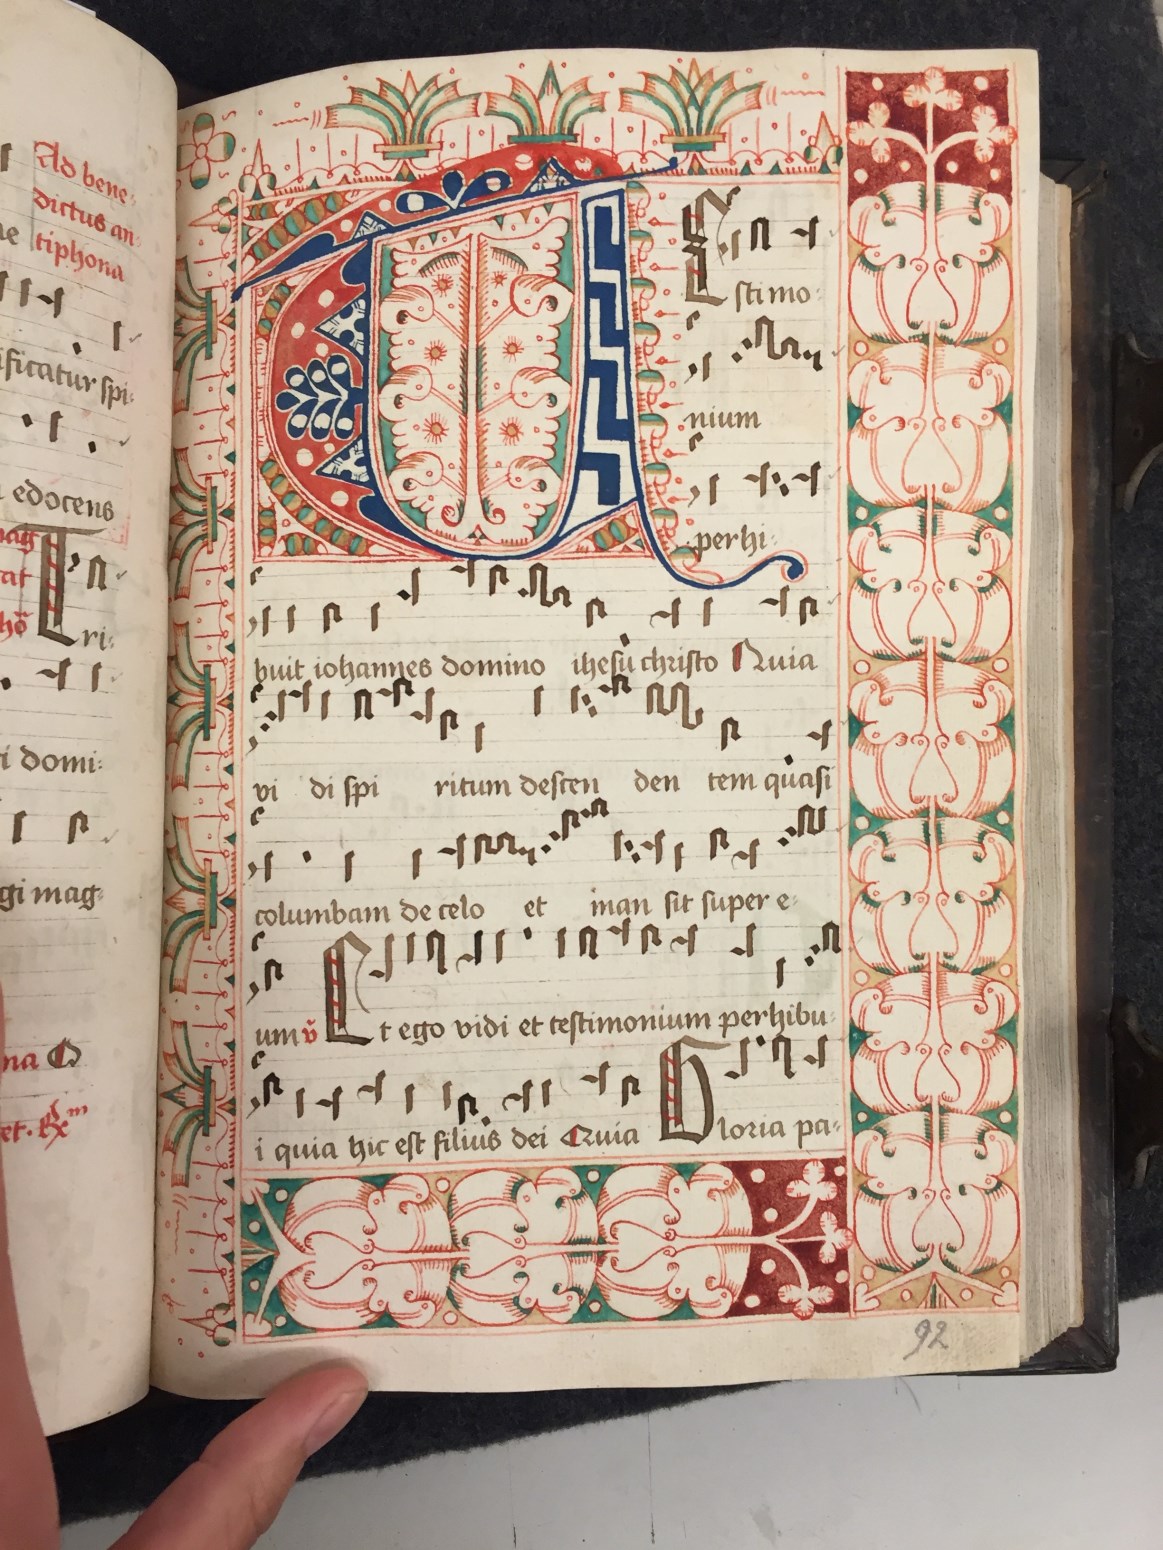 Ad bene-
dictus an-
tiphona
ificatur spi-
edocens
mag
Tri-
i domi-
gi mag-
na
TEstimo-
nium
perhi-
buit iohannes domino ihesu christo Quia
vi di spi ritum descen den tem quasi
columbam de celo et man sit super e-
um v̄ Et ego vidi et testimonium perhibu-
i quia hic est filius dei Quia Gloria pa-
92